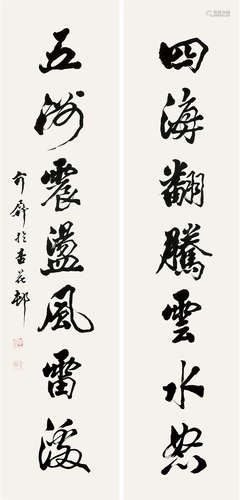 四海翻騰雲水怒
五洲震盪風雷激
於杏花邨